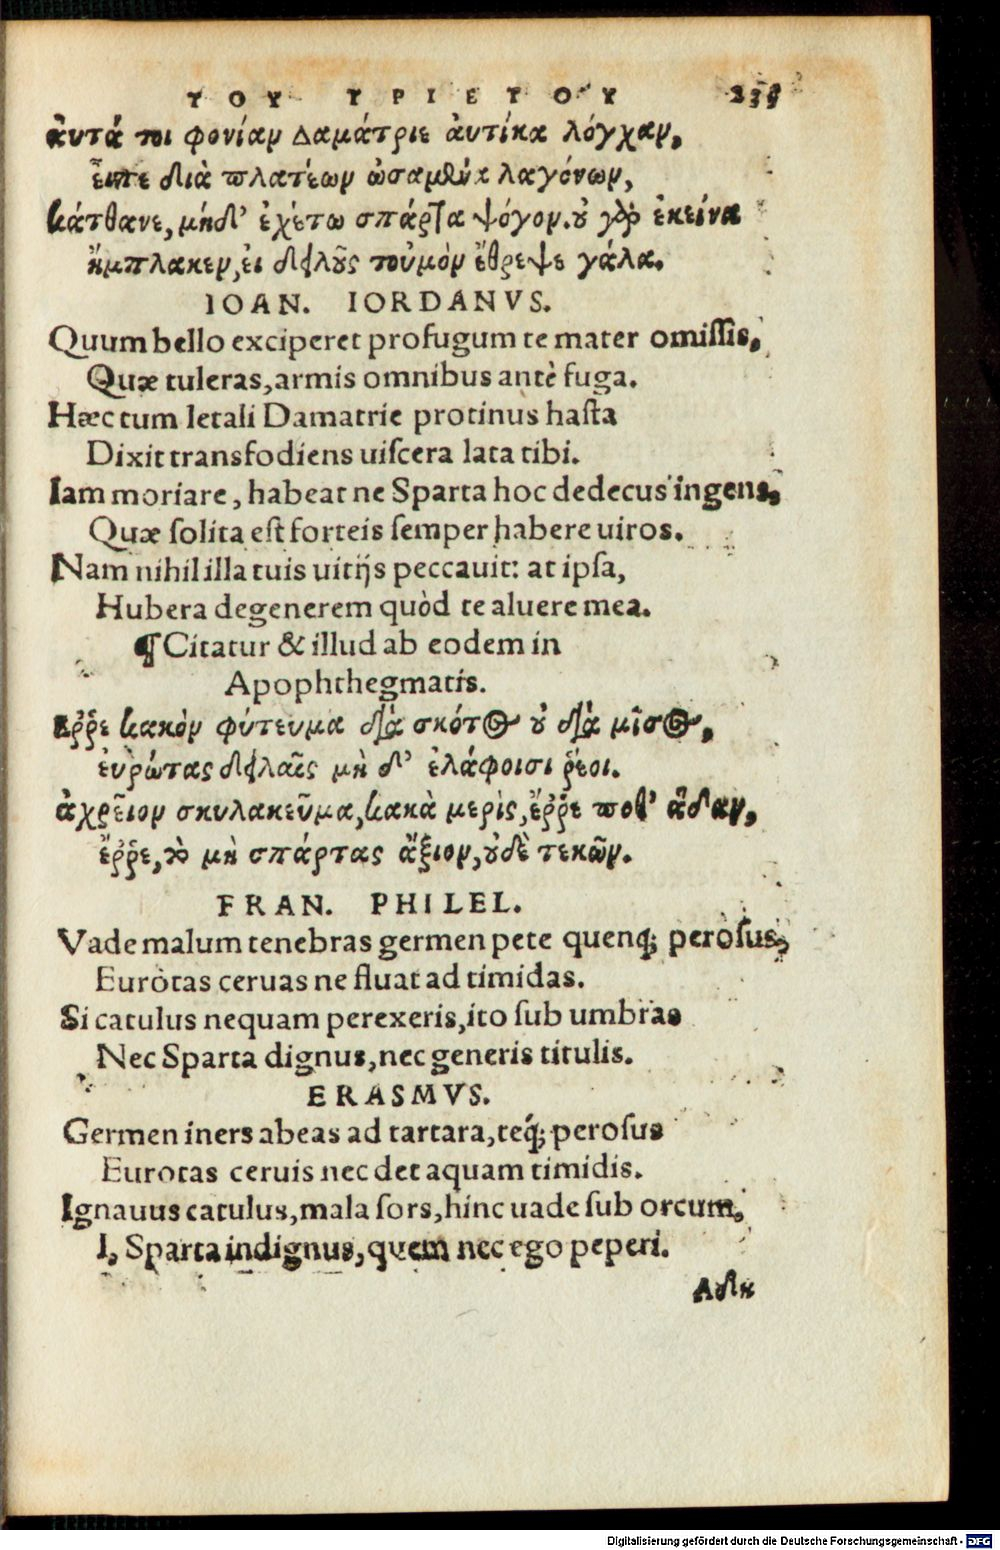 ΤΟΥ ΤΡΙΕΤΟΥ
ἀυτά τοι φονίαν Δαμάτριε ἀυτίκα λόγχαν,
εἶπε διὰ πλατέων ὠσαμένα λαγόνων,
κάτθανε, μηδ' ἐχέτω σπάρτα ψόγον. οὐ γὰρ ἐκείνα
ἤμπλακεν, ἐι δειλοὺς τοὐμὸν ἔθρεψε γάλα.
IOAN. IORDANVS.
Quum bello exciperet profugum te mater omiſſis,
Quæ tuleras, armis omnibus antè fuga.
Hæc tum letali Damatrie protinus haſta
Dixit transfodiens uiſcera lata tibi.
Iam moriare, habeat ne Sparta hoc dedecus ingens,
Quæ ſolita eſt forteis ſemper habere uiros.
Nam nihil illa tuis uitijs peccauit: at ipſa,
Hubera degenerem quòd te aluere mea.
¶ Citatur & illud ab eodem in
Apophthegmatis.
Ερῥε κακὸν φύτευμα διὰ σκότος οὐ διὰ μῖσος,
ἐυρώτας δειλαῖς μὴ δ' ἐλάφοισι ῥέοι.
ἀχρεῖον σκυλακεῦμα, κακὰ μερὶς, ἔρῥε ποθ' ἅδαν,
ἔρῥε, τὸ μὴ σπάρτας ἄξιον, οὐδὲ τεκῶν.
FRAN. PHILEL.
Vade malum tenebras germen pete quenq; peroſus,
Eurotas ceruas ne fluat ad timidas.
Si catulus nequam perexeris, ito ſub umbras
Nec Sparta dignus, nec generis titulis.
ERASMVS.
Germen iners abeas ad tartara, teq́; peroſus
Eurotas ceruis nec det aquam timidis.
Ignauus catulus, mala ſors, hinc uade ſub orcum,
I, Sparta indignus, quem nec ego peperi.
Αδη
Digitalisierung gefördert durch die Deutsche Forschungsgemeinschaft - DFG